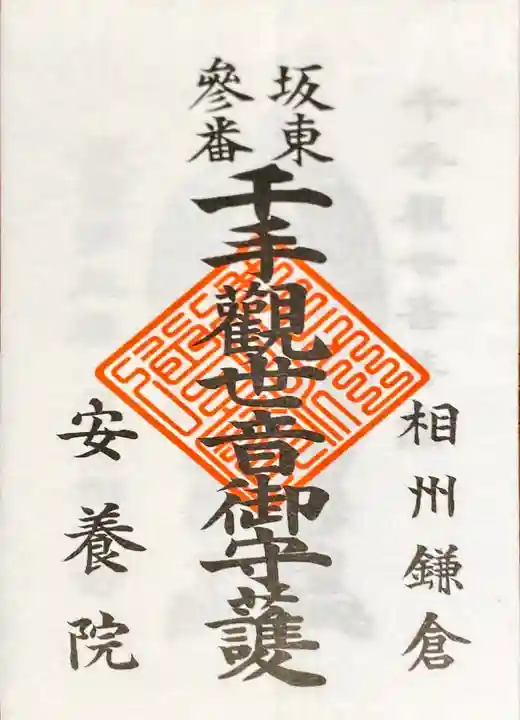 坂東
參番
千手觀世音御守護
相州鎌倉
安養院